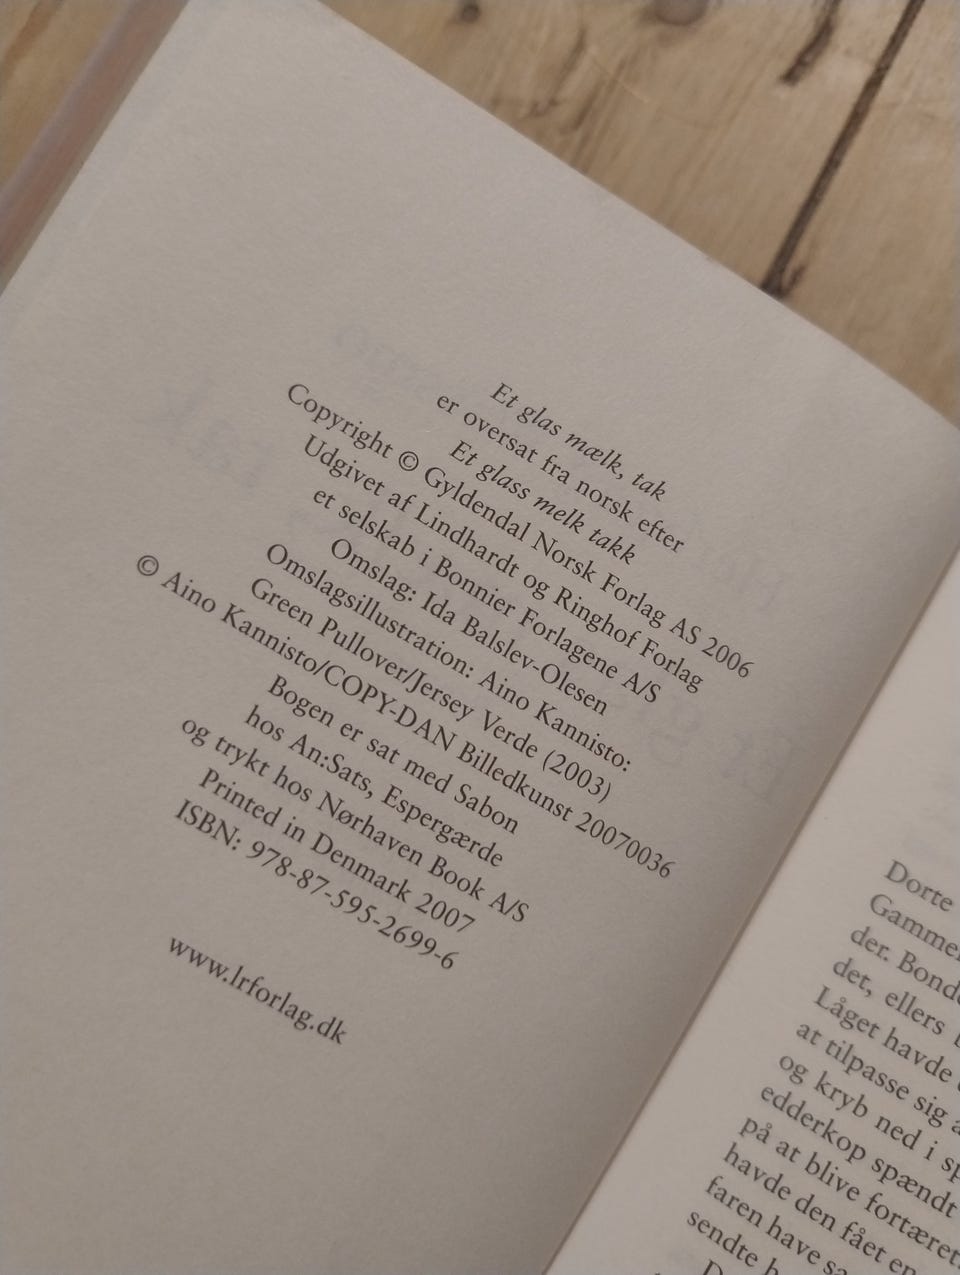 Et glas mælk, tak
er oversat fra norsk efter
Et glass melk takk
Copyright © Gyldendal Norsk Forlag AS 2006
Udgivet af Lindhardt og Ringhof Forlag
et selskab i Bonnier Forlagene A/S
Omslag: Ida Balslev-Olesen
Omslagsillustration: Aino Kannisto:
Green Pullover/Jersey Verde (2003)
© Aino Kannisto/COPY-DAN Billedkunst 20070036
Bogen er sat med Sabon
hos An:Sats, Espergærde
og trykt hos Nørhaven Book A/S
Printed in Denmark 2007
ISBN: 978-87-595-2699-6
www.lrforlag.dk
Dorte
der.
det, ellers
Låget havde
at tilpasse sig
og kryb ned i
edderkop spændt
på at blive fortæret.
havde den fået en
faren have
sendte